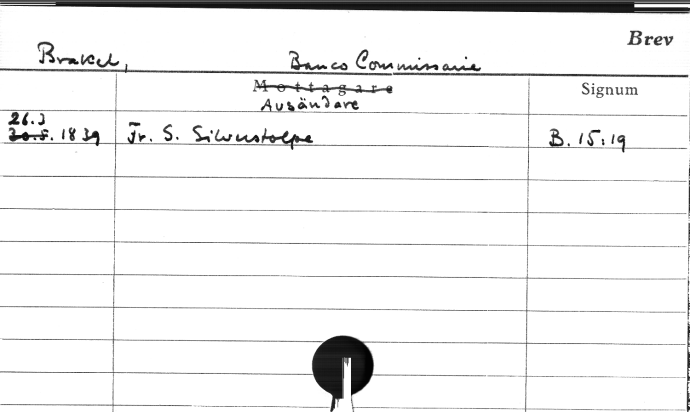 Brev
Brakel, Banco Commissarie
Mottagare Signum
Avsändare
26.3
30.5. 1839 Fr. S. Silverstolpe B. 15:19